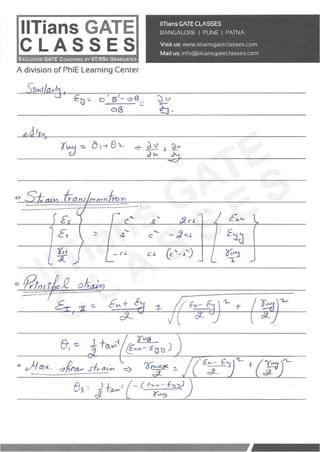 IITians GATE
CLASSES
EXCLUSIVE GATE COACHING BY IIT/IISC GRADUATES
A division of PhIE Learning Center
IITians GATE CLASSES
BANGALORE | PUNE | PATNA
Visit us: www.iitiansgateclasses.com
Mail us: info@iitiansgateclasses.com
Similarly,
εy = (o'B' - OB)/OB = ∂v/∂y.
Also,
γxy = θ1 + θ2 = ∂v/∂x + ∂u/∂y
Strain transformation
{εs, εt, γst/2} = [c² s² 2cs; s² c² -2cs; -cs cs (c²-s²)] {εxx, εyy, γxy/2}
Principal strain
εI, II = (εx + εy)/2 ± √(((εx - εy)/2)² + (γxy/2)²)
θ1 = 1/2 tan⁻¹(γxy/(εxx - εyy))
Max. shear strain ⇒ γmax/2 = √(((εx - εy)/2)² + (γxy/2)²)
θs = 1/2 tan⁻¹(-(εxx - εyy)/γxy)
IITians GATE
CLASSES